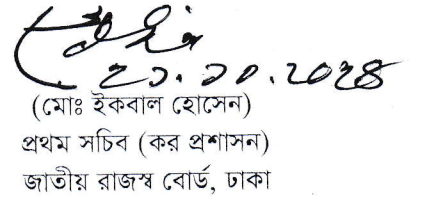 ২১.১০.২০২৪
(মোঃ ইকবাল হোসেন)
প্রথম সচিব (কর প্রশাসন)
জাতীয় রাজস্ব বোর্ড, ঢাকা